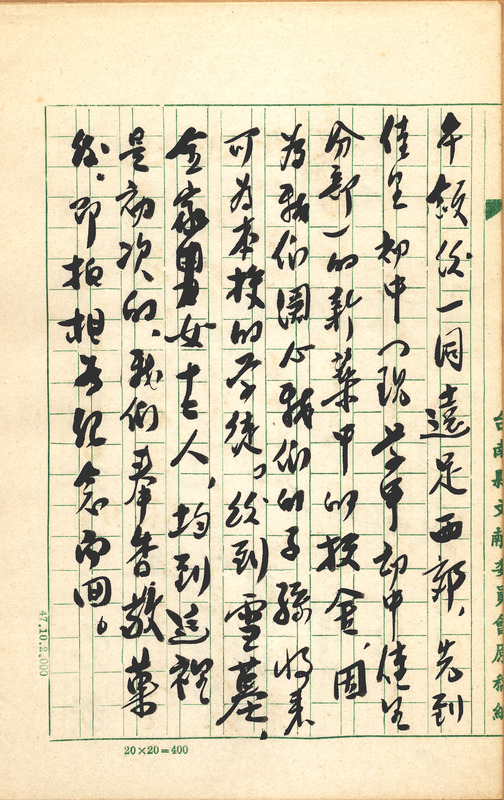 台南縣文獻委員會原稿紙
午頓後一同遠足西郊,先到
佳里初中(現學甲初中佳里
分部)的新築中的校舍,因
為我們関心我們的子孫將來
可為本校的学徒。後到雪墓,
全家男女十人,均到這裡
是初次的,我們奉香敬菓
後,即拍相為紀念而回。
47.10.2,000
20×20=400